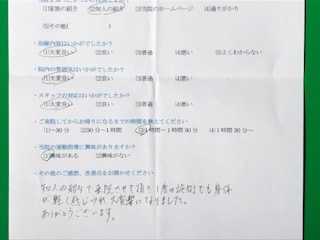 (1)家族の紹介 (2)知人の紹介 (3)当院のホームページ (4)通りがかり
(5)その他( )
・治療内容はいかがでしたか?
(1)大変良い (2)良い (3)普通 (4)悪い (5)よくわからない
・院内の雰囲気はいかがでしたか?
(1)大変良い (2)良い (3)普通 (4)悪い
・スタッフの対応はいかがでしたか?
(1)大変良い (2)良い (3)普通 (4)悪い
・ご来院してからお帰りになるまでの時間を教えてください
(1)~30分 (2)30分~1時間 (3)1時間~1時間30分 (4)1時間30分~
・当院の運動指導に興味がありますか?
(1)興味がある (2)興味がない
・その他のご感想、改善点をお聞かせください
知人の紹介で来院させて頂き1度の施術でも身体
が軽く感じられ大変楽になりました。
ありがとうございます。